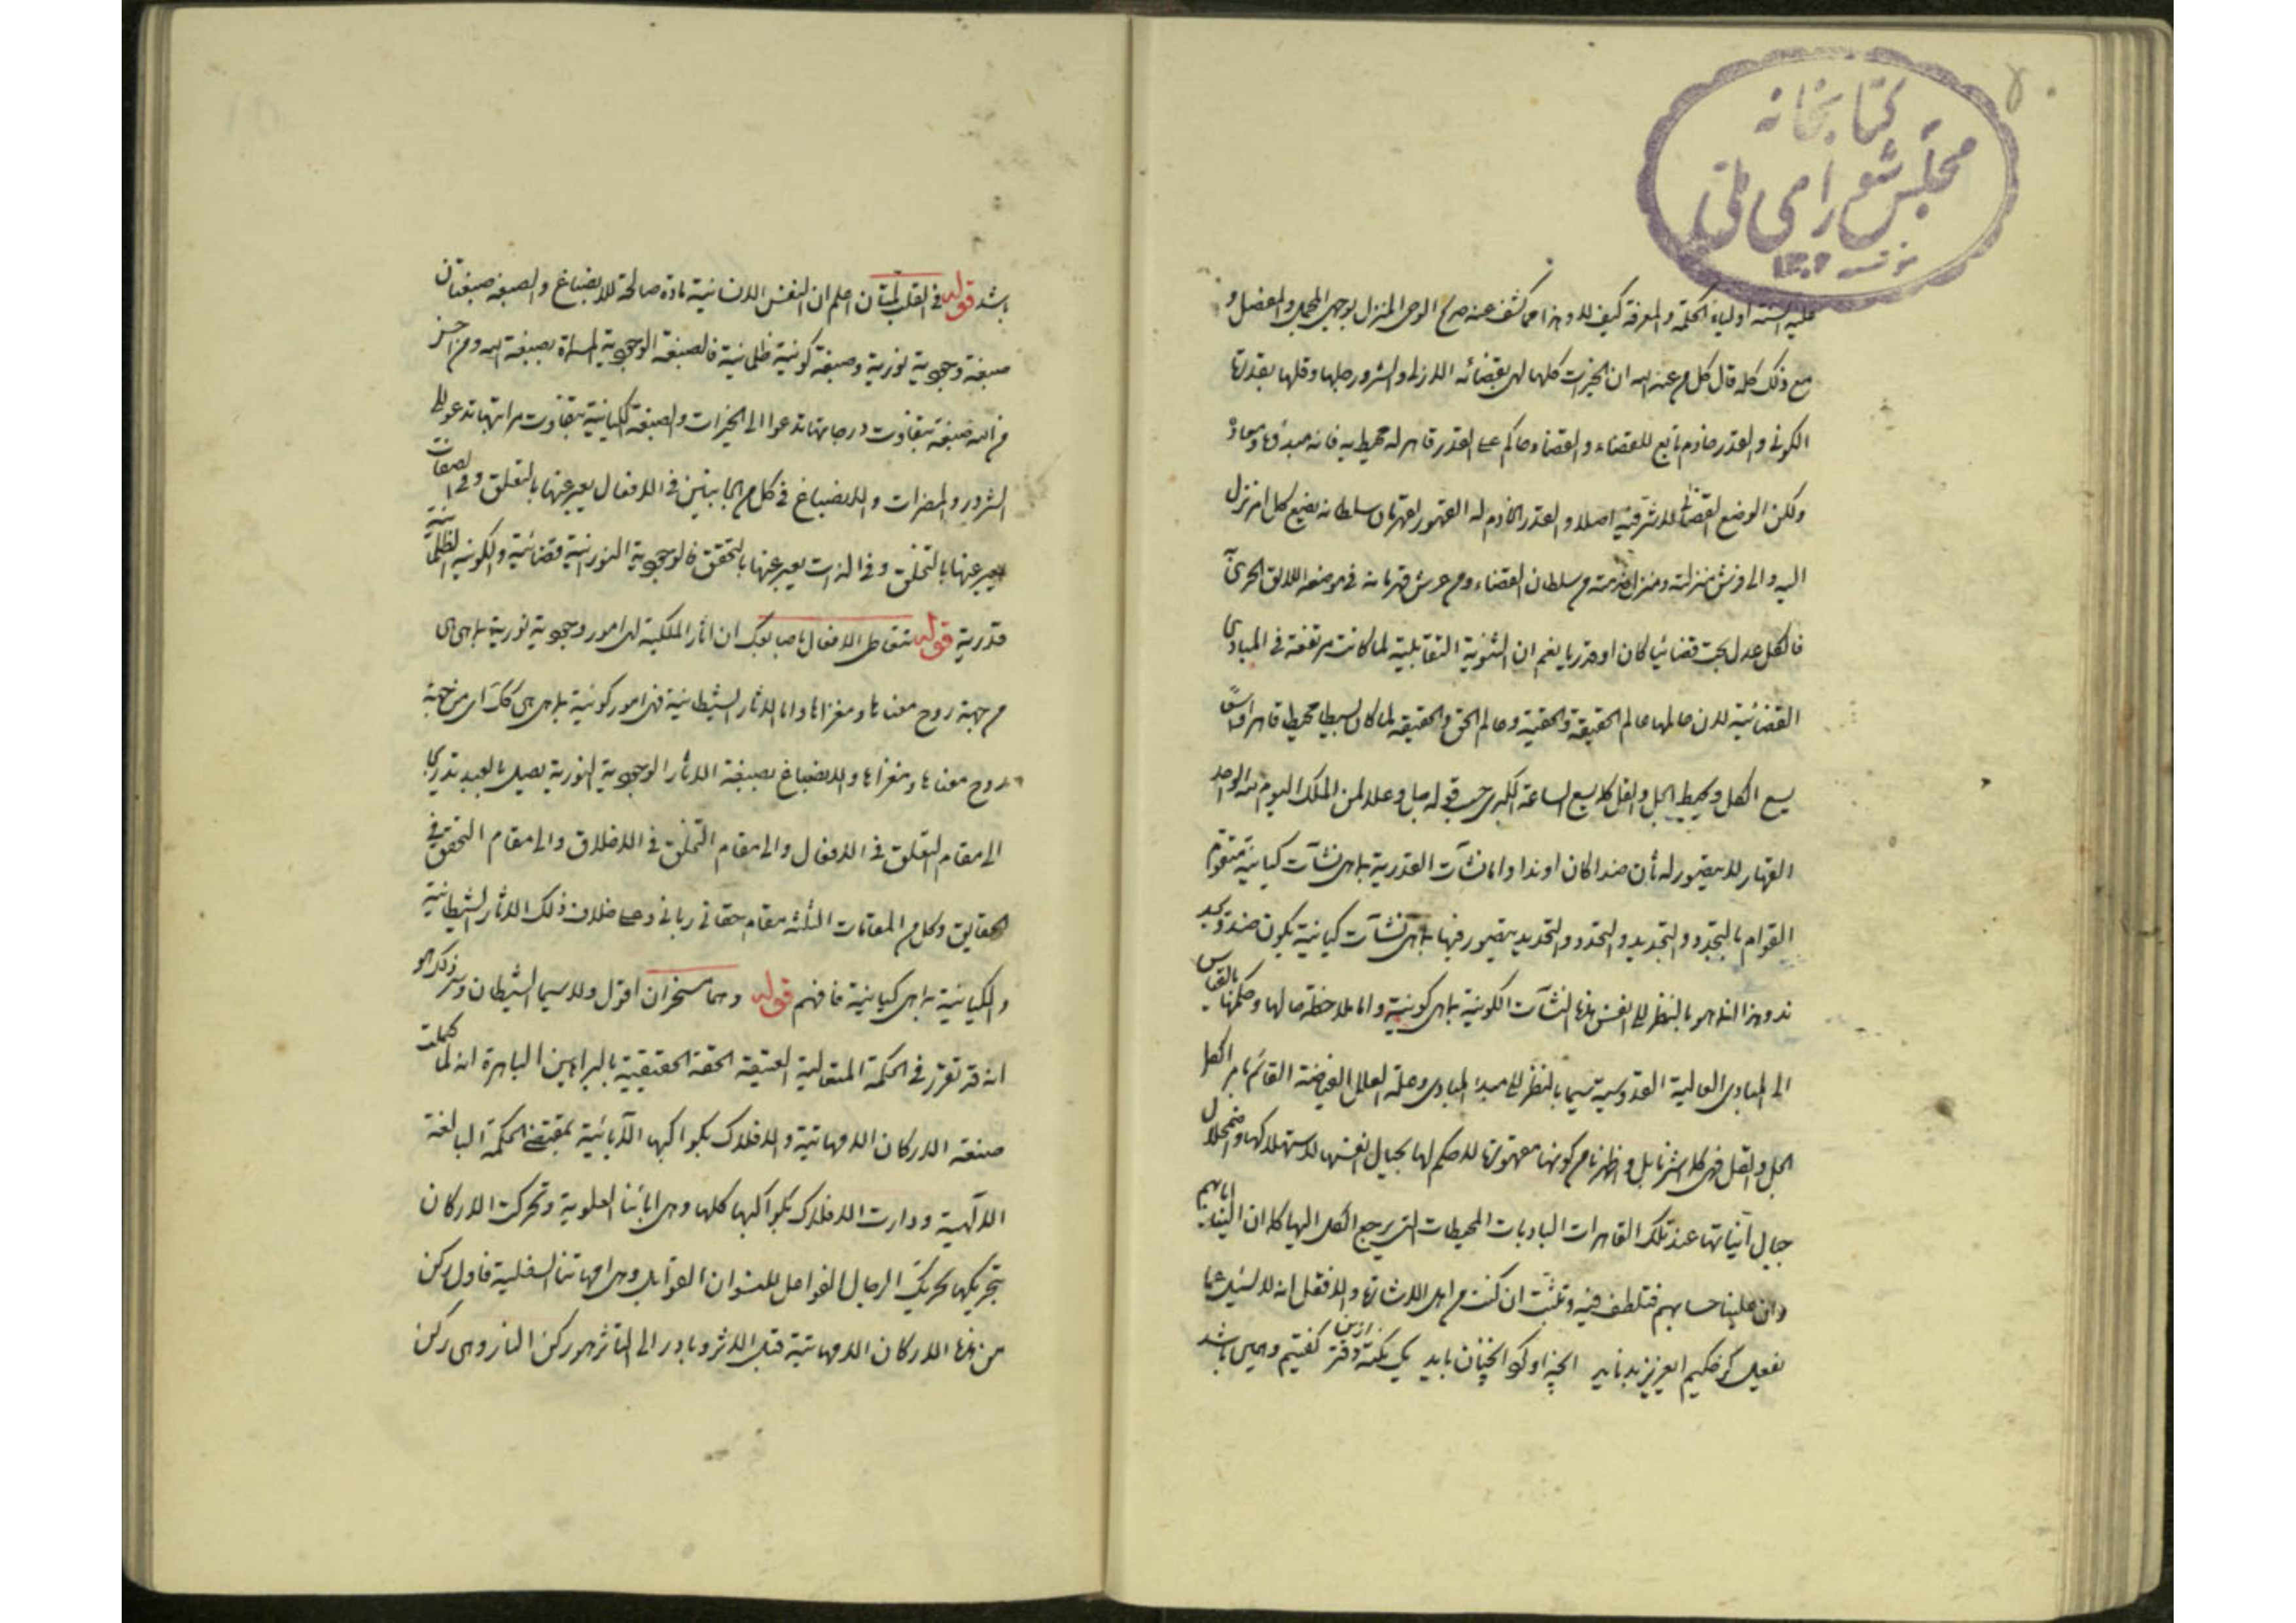 كتابخانه
مجلس شورای ملی
١٣٠٢
عليه السنة أولياء الحكمة والمعرفة كيف لا وهذا مما كشف عنه صرح الوحى المنزل بوجهى المجمل والمفصل و
مع ذلك كله قال كل من عند الله ان الخيرات كلها انما هى بقضائه الازلى والشرور جلها وقلها بقدرتها
الكونى والقدر خادم تابع للقضاء والقضاء حاكم على القدر قاهر له محيط به فانه مبدؤها ومعاد
ولكن الوضع القضائى للاشرقية اصلا والقدر الخادم له المقهور لقهرمان سلطانه يضع كل امر نزل
اليه والى فرش منزلته ومنزل خدمته من سلطان القضاء ومن عرش قهرمانه فى موضعه اللايق الحرى به
فالكل عدل بحت قضائيا كان او قدريا نعم ان الثنوية التقابلية لما كانت مرتفعة فى المبادى
القضائية لان عالمها عالم الحقيقة والحقية وعالم الحق والحقيقة لما كان بسيطا محيطا قاهرا واسعا
يسع الكل ويحيط بالجل والقل كما يسع الساعة الكبرى حسب قوله جل وعلا لمن الملك اليوم لله الواحد
القهار لا يتصور له بأن ضدا كان او ندا واما نشآت القدرية بما هى نشآت كيانية متقوم
القوام بالتجدد والتجديد والتحدد والتحديد يتصور فيها بما هى نشآت كيانية يكون ضد وند
ند وهذا انما هو بالنظر الى انفس هذه النشآت الكونية بما هى كونية واما ملاحظة حالها وحكمها بالقياس
الى المبادى العالية القدوسية سيما بالنظر الى مبدء المبادى وعلة العلل الفياضة القائم بامر الكل
الجل والقل فهى كلا شىء بل واظهرنا من كونها مقهورتها لا حكم لها بحيال انفسها لاستهلاكها واضمحلال
جبال آنياتها عند تلك القاهرات الباديات المحيطات التى يرجع الكل اليها كله ان الينا ايابهم
وان علينا حسابهم فتلطف فيه وتثبت ان كنت من اهل الاشارة والا فقل انه لا يسئل عما
يفعل گر حكيم العزيز بدنايد آنچه او گو آنچنان بايد يک نكته ازين دفتر گفتيم وهمين باشد
باشد قوله فى القلب لمتان اعلم ان النفس الانسانية مادة صالحة للانصباغ والصبغه صبغتان
صبغة وجوبية نورية وصبغة كونية ظلمانية فالصبغة الوجوبية المسماة بصبغة الله ومن احسن
من الله صبغة بتفاوت درجاتها تدعوا الى الخيرات والصبغة الكيانية بتفاوت مراتبها تدعو الى
الشرور والمضرات والانصباغ فى كل من الجانبين فى الافعال يعبر عنها بالتعلق وفى الصفات
يعبر عنها بالتخلق وفى الذات يعبر عنها بالتحقق فالوجوبية النورانية قضائية والكونية الظلمانية
قدرية قوله تتعاطى الافعال ما صاحبك ان آثار الملكية امور وجوبية نورية بما هى هى
من جهة روح معناها ومغزاها واما الاثار الشيطانية فهى امور كونية بما هى هى كك اى من جهة
روح معناها ومغزاها والانصباغ بصبغة الاثار الوجوبية النورية يصل بالعبد تدريجا
الى مقام التعلق فى الافعال والى مقام التخلق فى الاخلاق والى مقام التحقق فى
الحقايق وكل من المقامات الثلثه مقام حقانى ربانى وعلى خلاف ذلك الاثار الشيطانية
والكيانية بما هى كيانية فافهم قوله وهما مسخران اقول ولا سيما الشيطان وسر ذلك هو
انه قد تقرر فى الحكمة المتعالية العتيقة الحقة الحقيقية بالبراهين الباهرة انه لما كملت
صنعة الاركان الامهاتية والافلاك بكواكبها الآبائية بمقتضى الحكمة البالغة
الالهية ودارت الافلاك بكواكبها كلها وهى آبائنا العلوية وتحركت الاركان
بتحريكها تحريك الرجال الفواعل للنسوان القوابل وهى امهاتنا السفلية فاول ركن
من هذه الاركان الامهاتية قبل الاثر وبادر الى التاثر هو ركن النار وهى ركن